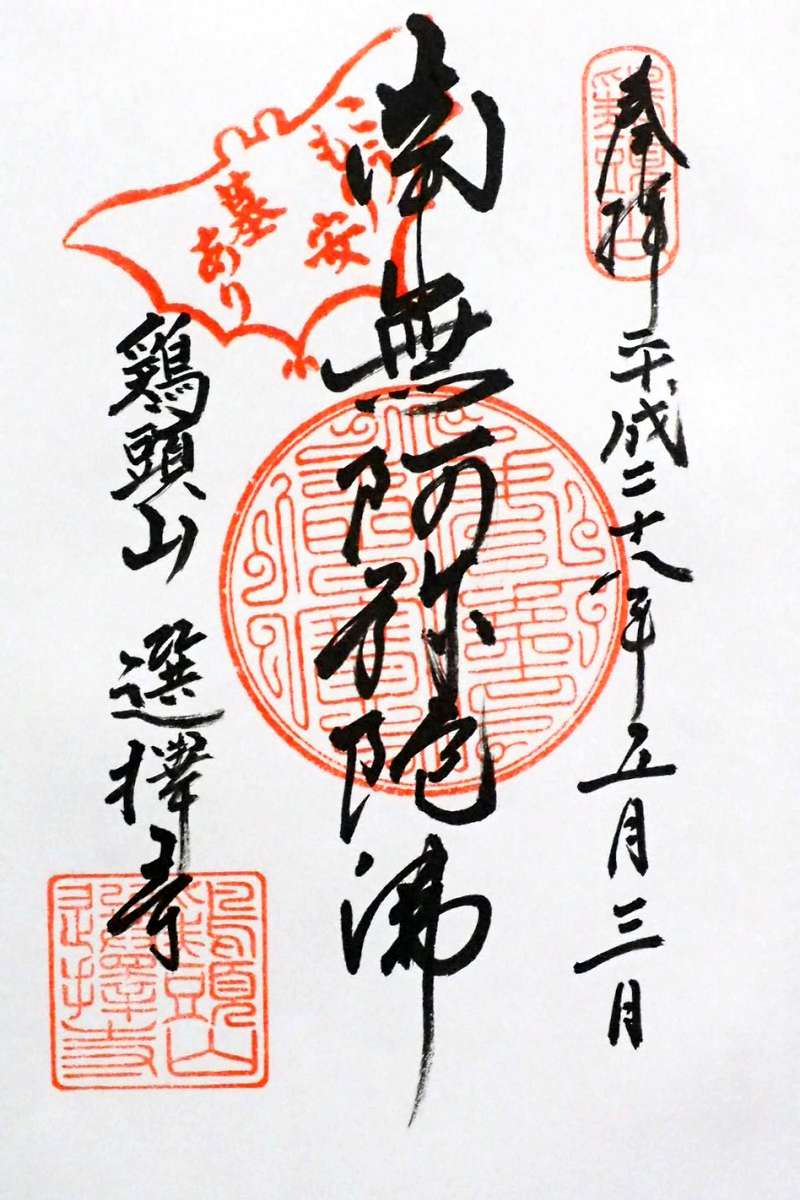 奉拝 平成二十八年五月三日
鶏頭山
南無阿弥陀佛
こうもり安
墓あり
鶏頭山 選擇寺
鶏頭山
選擇寺